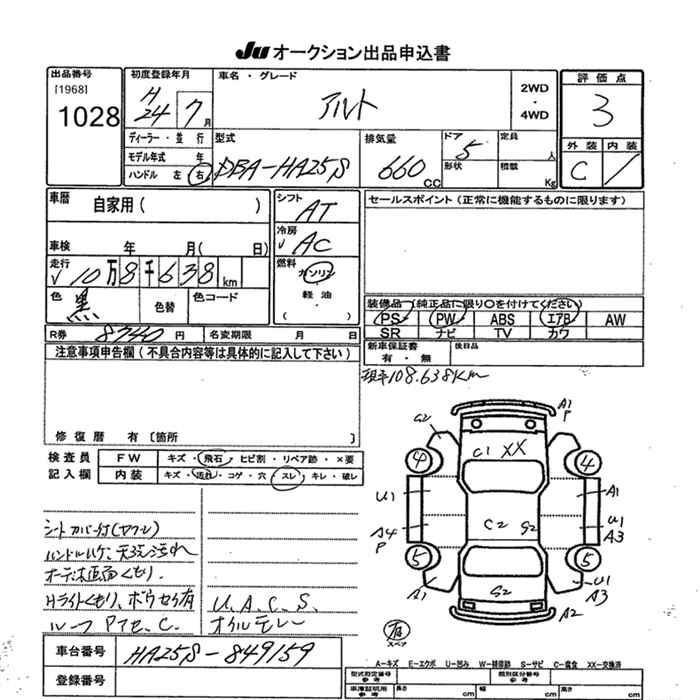 Ju オークション出品申込書
出品番号
[1968]
1028
初度登録年月
H24 7月
車名・グレード
アルト
2WD
・
4WD
評価点
3
外装 内装
C
ディーラー・並行
モデル年式 年
ハンドル 左 右
型式
DBA-HA25S
排気量
660 CC
ドア 5
形状
定員 人
積載 Kg
車歴
自家用( )
車検 年 月( 日)
走行
✓ 10万8千638km
色 黒
色替
色コード
シフト
AT
冷房
✓ AC
燃料
ガソリン
軽油
( )
セールスポイント(正常に機能するものに限ります)
装備品(純正品に限り○を付けてください)
PS PW ABS エアB AW
SR ナビ TV カワ
新車保証書
有・無
後日品
R券 8740円
名変期限 月 日
注意事項申告欄(不具合内容等は具体的に記入して下さい)
修復歴 有〔箇所 〕
現車108.638Km
検査員
記入欄
FW キズ・飛石・ヒビ割・リペア跡・×要
内装 キズ・汚れ・コゲ・穴・スレ・キレ・破レ
シートカバー付(ヤブレ)
ハンドルハゲ、天張汚れ
Hライトくもり、ボウセイ有
ルーフ Pアセ、C.
U.A.C.S.
オイルモレー
A1
P
G2
C1 XX
4 4
U1 A1
C2 G2
A4
P
U1
A3
5 5
A1 S2 U1
A3
A2
有
スペア
A―キズ E―エクボ U―凹み W―補修跡 S―サビ C―腐食 XX―交換済
車台番号 HA25S-849159
登録番号
型式指定番号
参考
類別区分番号
参考
車庫証明用
参考
長さ cm 幅 cm 高さ cm